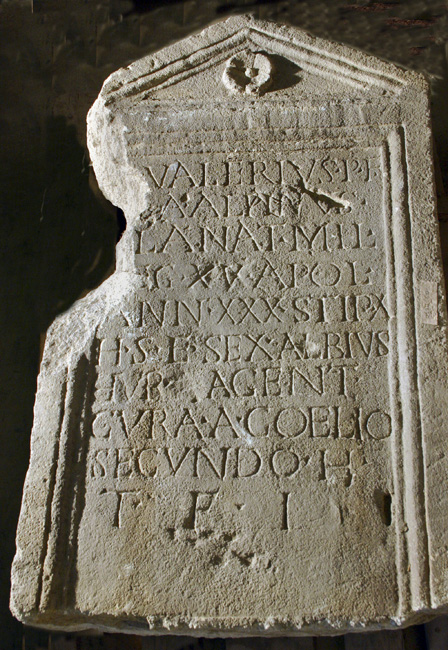 VALERIVS·P·F
LANAT·MIL
G·XV·APOL
ANN·XXX·STIP·X
H·S·E·SEX·ALBIVS
AGENT
CVRA·A·COELIO
SECVNDO·H
T·F·I